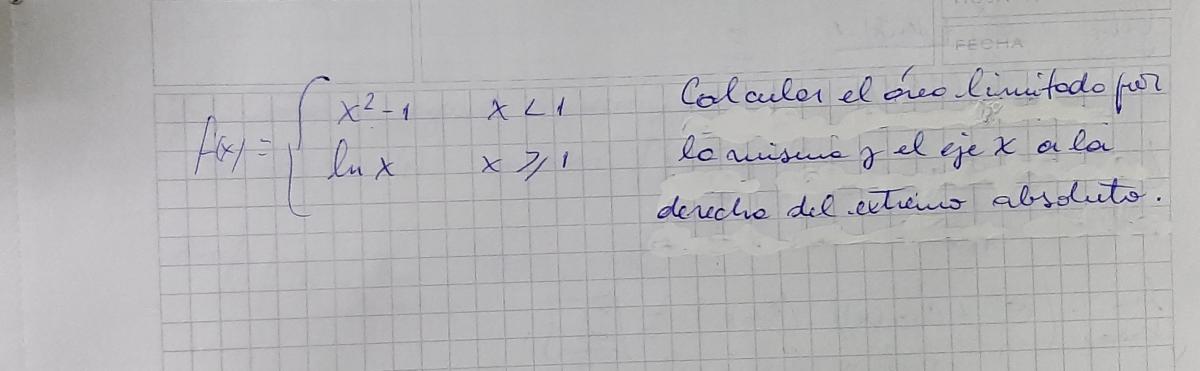 FECHA
f(x) = { x² - 1 x < 1
ln x x ⩾ 1
Calcular el área limitado por
la misma y el eje x a la
derecha del extremo absoluto.